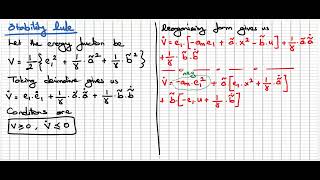 Stability Rule
Let the energy function be
V = 1/2 { e₁² + 1/γ · ã² + 1/γ · b̃² }
Taking derivative gives us
V̇ = e₁ · ė₁ + 1/γ · ã · ã̇ + 1/γ · b̃ · b̃̇
Conditions are
V ≥ 0 , V̇ ≤ 0
Reorganising form gives us
V̇ = e₁ · [ -am e₁ + ã · x² - b̃ · u ] + 1/γ · ã ã̇
+ 1/γ · b̃ · b̃̇
V̇ = -am e₁² + ã [ e₁ · x² + 1/γ · ã̇ ]
+ b̃ · [ -e₁ u + 1/γ · b̃̇ ]